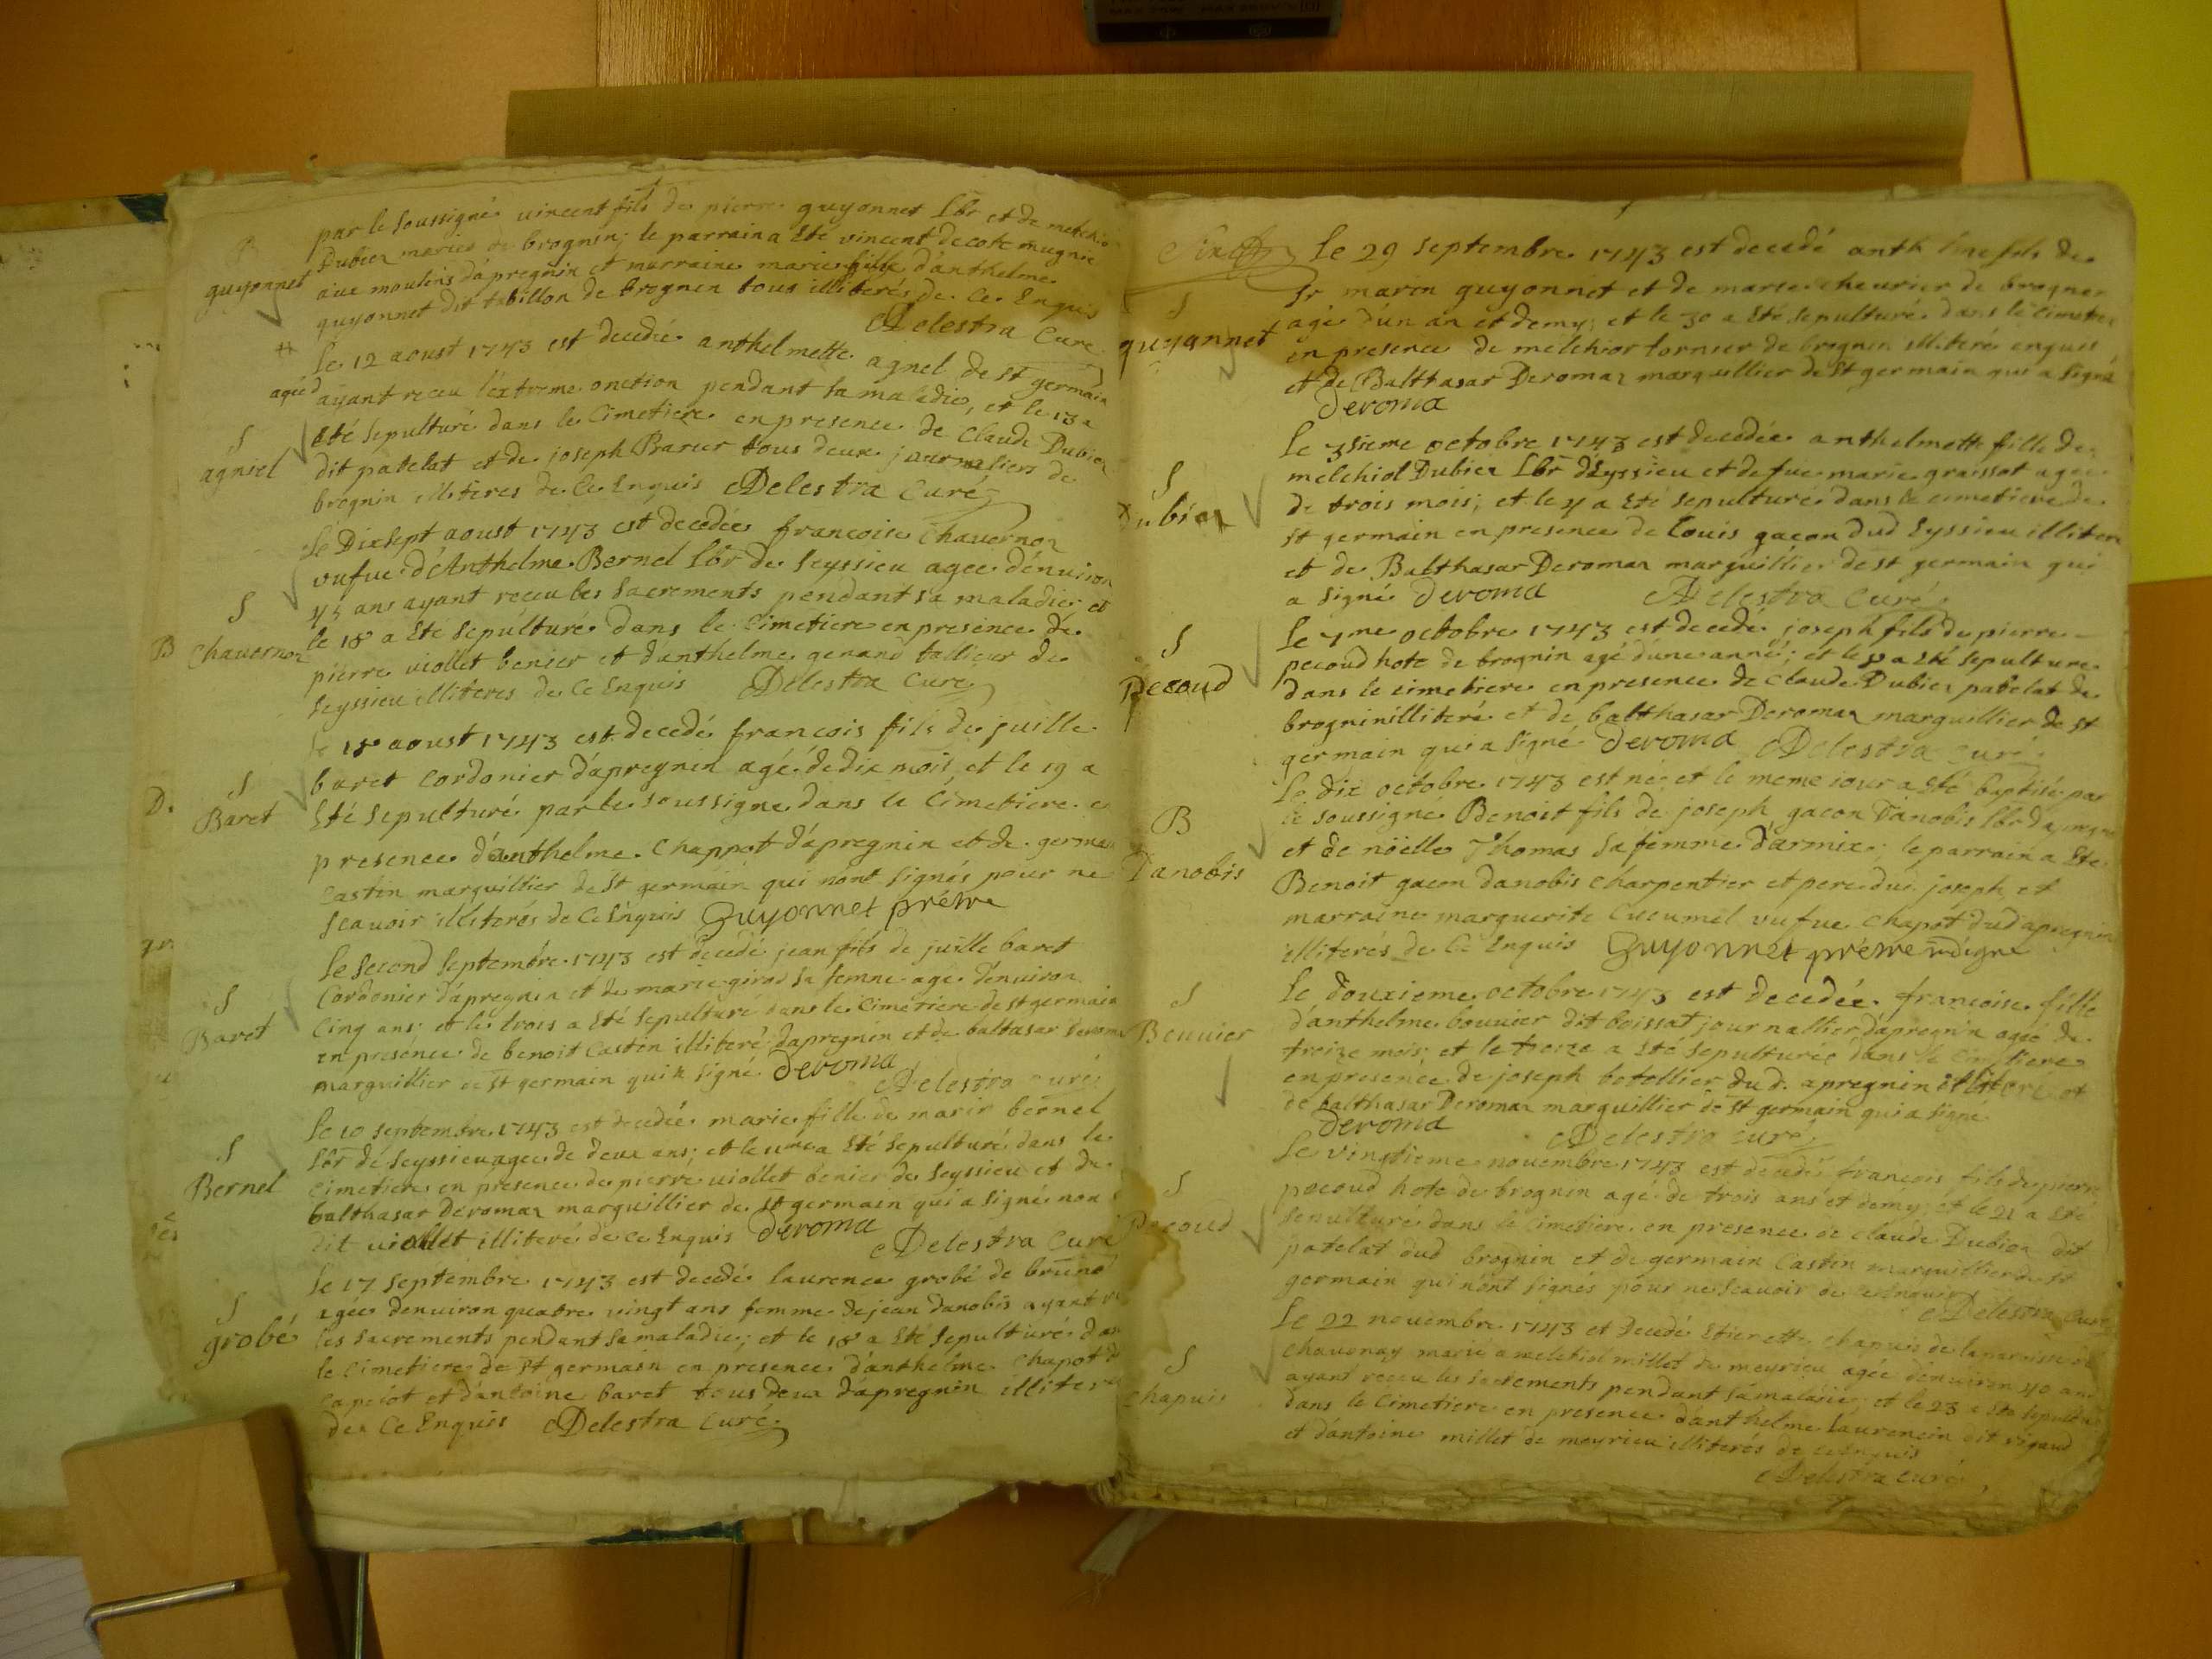 par le soussigné vincent fils de pierre guyonnet Lbr et de melchio
Dubien mariés de brognin; le parrain a Eté vincent decote mugnié
B
guyonnet
aux moulins d'apregnin et marraine marie fille d'anthelme
guyonnet dit tabillon de brognin tous illiterés de ce Enquis
Delestra Curé
Le 12 aoust 1743 est decedée anthelmette agnel de st germain
agée d
ayant receu l'extreme onction pendant sa maladie, et le 13 a
S
agniel
Eté sepulturé dans le Cimetiere en presence de Claude Dubien
dit patelat et de joseph Barur tous deux journaliers de
brognin illiteres de Ce Enquis Delestra Curé
Le Dixsept aoust 1743 est decedée francoise Chavernon
vufue d'Anthelme Bernel Lbr de Seyssieu agee d'environ
45 ans ayant receu les Sacrements pendant sa maladie et
S
B Chavernon
le 18 a Eté Sepulturé dans le Cimetiere en presence de
pierre viollet benier et d'anthelme genand tallieur de
Seyssieu illiteres de Ce Enquis Delestra Curé
le 18 aoust 1743 est decedé francois fils de juille
baret Cordonier d'apregnin agé de dix mois, et le 19 a
S
D. Baret
Eté sepulturé par le soussigné dans le Cimetiere e
presence d'anthelme Chappot d'apregnin et de germai
Castin marguillier de St germain qui n'ont signés pour ne
scavoir illiterés de Ce Enquis Guyonnet prêtre
Le second Septembre 1743 est decedé jean fils de juille baret
Cordonier d'apregnin et de marie girod sa femme agé d'environ
S
Baret
Cinq ans; et le trois a Eté sepulturé dans le Cimetiere de st germain
en presence de benoit Castin illiteré d'apregnin et de baltasar Deroma
marguillier de St germain qui a signé Deroma
Delestra curé
Le 10 septembre 1743 est decedée marie fille de marin bernel
S
Bernel
Lbr de Seyssieu agée de deux ans; et le 11me a Eté sepulturé dans le
Cimetiere en presence de pierre viollet benier de Seyssieu et de
balthasar Deroman marguillier de St germain qui a signé non l
dit viollet illiteré de ce Enquis Deroma
Delestra Curé
Le 17 Septembre 1743 est decedé laurence grobé de bruno
agée d'environ quatre vingt ans femme de jean danobis ayant r
S
grobé
les sacrements pendant sa maladie; et le 18 a Eté sepulturé dan
le Cimetiere de St germain en presence d'anthelme Chapot d
et d'antoine baret tous deux d'apregnin illiteré
de Ce Enquis Delestra Curé
Le 29 Septembre 1743 est decedé anthelme fils de
Sr marin guyonnet et de marie cheurier de brognin
S
guyonnet
agé d'un an et demy; et le 30 a Eté sepulturé dans le Cimetier
en presence de melchior tornier de brognin illiteré enquis
et de Balthasar Deroman marguillier de St germain qui a signé
Deroma
Le 3sieme octobre 1743 est decedée anthelmette fille de
melchiol Dubien Lbr d'Eyssieu et de fue marie graissot agee
S
Dubien
de trois mois; et le 4 a Eté sepulturé dans le cimetiere de
st germain en presence de Louis gacon dud Eyssieu illiteré
et de Balthasar Deroman marguillier de st germain qui
a signé Deroma Delestra Curé
Le 7me octobre 1743 est decedé joseph fils de pierre
S
Pecoud
pecoud hote de brognin agé d'une anné; et le 8 a Eté sepulturé
dans le cimetiere en presence de Claude Dubien patelat de
brognin illiteré et de balthasar Deroman marguillier de st
germain qui a signé Deroma Delestra curé
Le dix octobre 1743 est né et le meme jour a Eté baptisé par
B
Danobis
le soussigné Benoit fils de joseph gacon Danobis Lbr d'apregnin
et de nöelle Thomas sa femme d'armix; le parrain a Eté
Benoit gacon danobis Charpentier et pere du joseph et
marraine marguerite Cucumel vufue Chapot dud apregnin
illiterés de Ce Enquis Guyonnet prêtre indigne
S
Bouvier
Le douxieme octobre 1743 est decedée francoise fille
d'anthelme bouvier dit boissat journallier d'apregnin agée de
treize mois; et le treize a Eté sepulturée dans le Cimetiere
en presence de joseph botollier du d. apregnin illiteré et
de balthasar Deroman marguillier de St germain qui a signé
Deroma Delestra curé
Le vingtieme novembre 1743 est decedé francois fils de pierre
S
Pecoud
pecoud hote de brognin agé de trois ans et demy, et le 21 a Eté
sepulturé dans le Cimetiere en presence de claude Dubien dit
patelat dud brognin et de germain Castin marguillier de St
germain qui n'ont signés pour ne scavoir de ce Enquis
Delestra curé
Le 22 novembre 1743 et decedé Etienette chapuis de la paroisse de
S
Chapuis
chavonay marié a melchiol millet de meyrieu agée d'environ 40 ans
ayant receu les sacrements pendant sa maladie; et le 23 a Eté sepulturé
dans le Cimetiere en presence d'anthelme Laurencin dit rigaud
et d'antoine millet de meyrieu illiterés de ce Enquis
Delestra curé